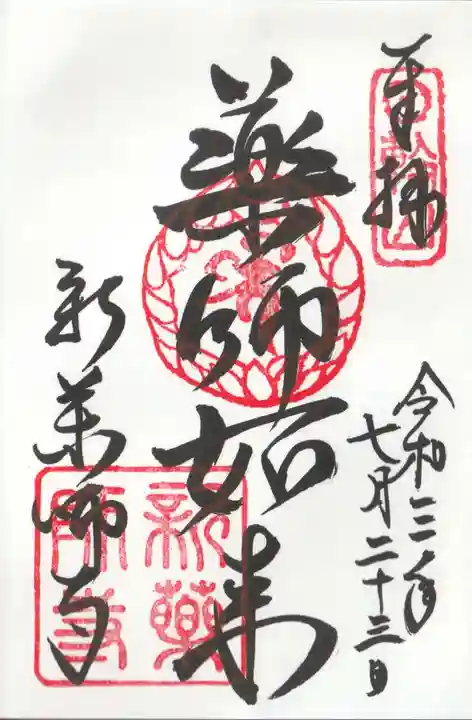 奉拝
令和三年
七月二十三日
薬師如来
新薬師寺
新薬
師寺